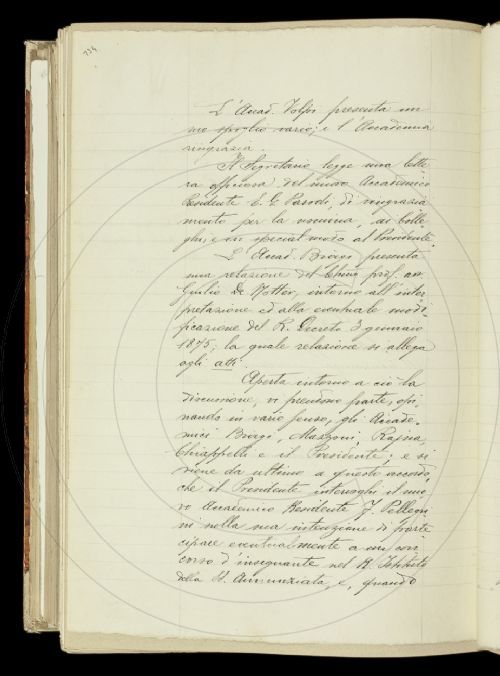 734
L'Accad. Volpi presenta un
suo spoglio vario; e l'Accademia
ringrazia.
Il Segretario legge una lette
ra officiosa del nuovo Accademico
Residente E. G. Parodi, di ringrazia
mento per la nomina, ai Colle
ghi, e in special modo al Presidente.
L'Accad. Biagi presenta
una relazione del prof. avv.
Giulio De Notter, intorno all'inter
pretazione ed alla eventuale modi
ficazione del R. Decreto 3 gennaio
1875; la quale relazione si allega
agli atti.
Aperta intorno a ciò la
discussione, vi prendono parte, opi
nando in vario senso, gli Accade-
mici Biagi, Mazzoni, Rajna,
Chiappelli e il Presidente; e si
viene da ultimo a questo accordo,
che il Presidente interroghi il nuo
vo Accademico Residente F. Pellegri
ni nella sua intenzione di parte
cipare eventualmente a un con
corso d'insegnante nel R. Istituto
della SS. Annunziata, e, quando